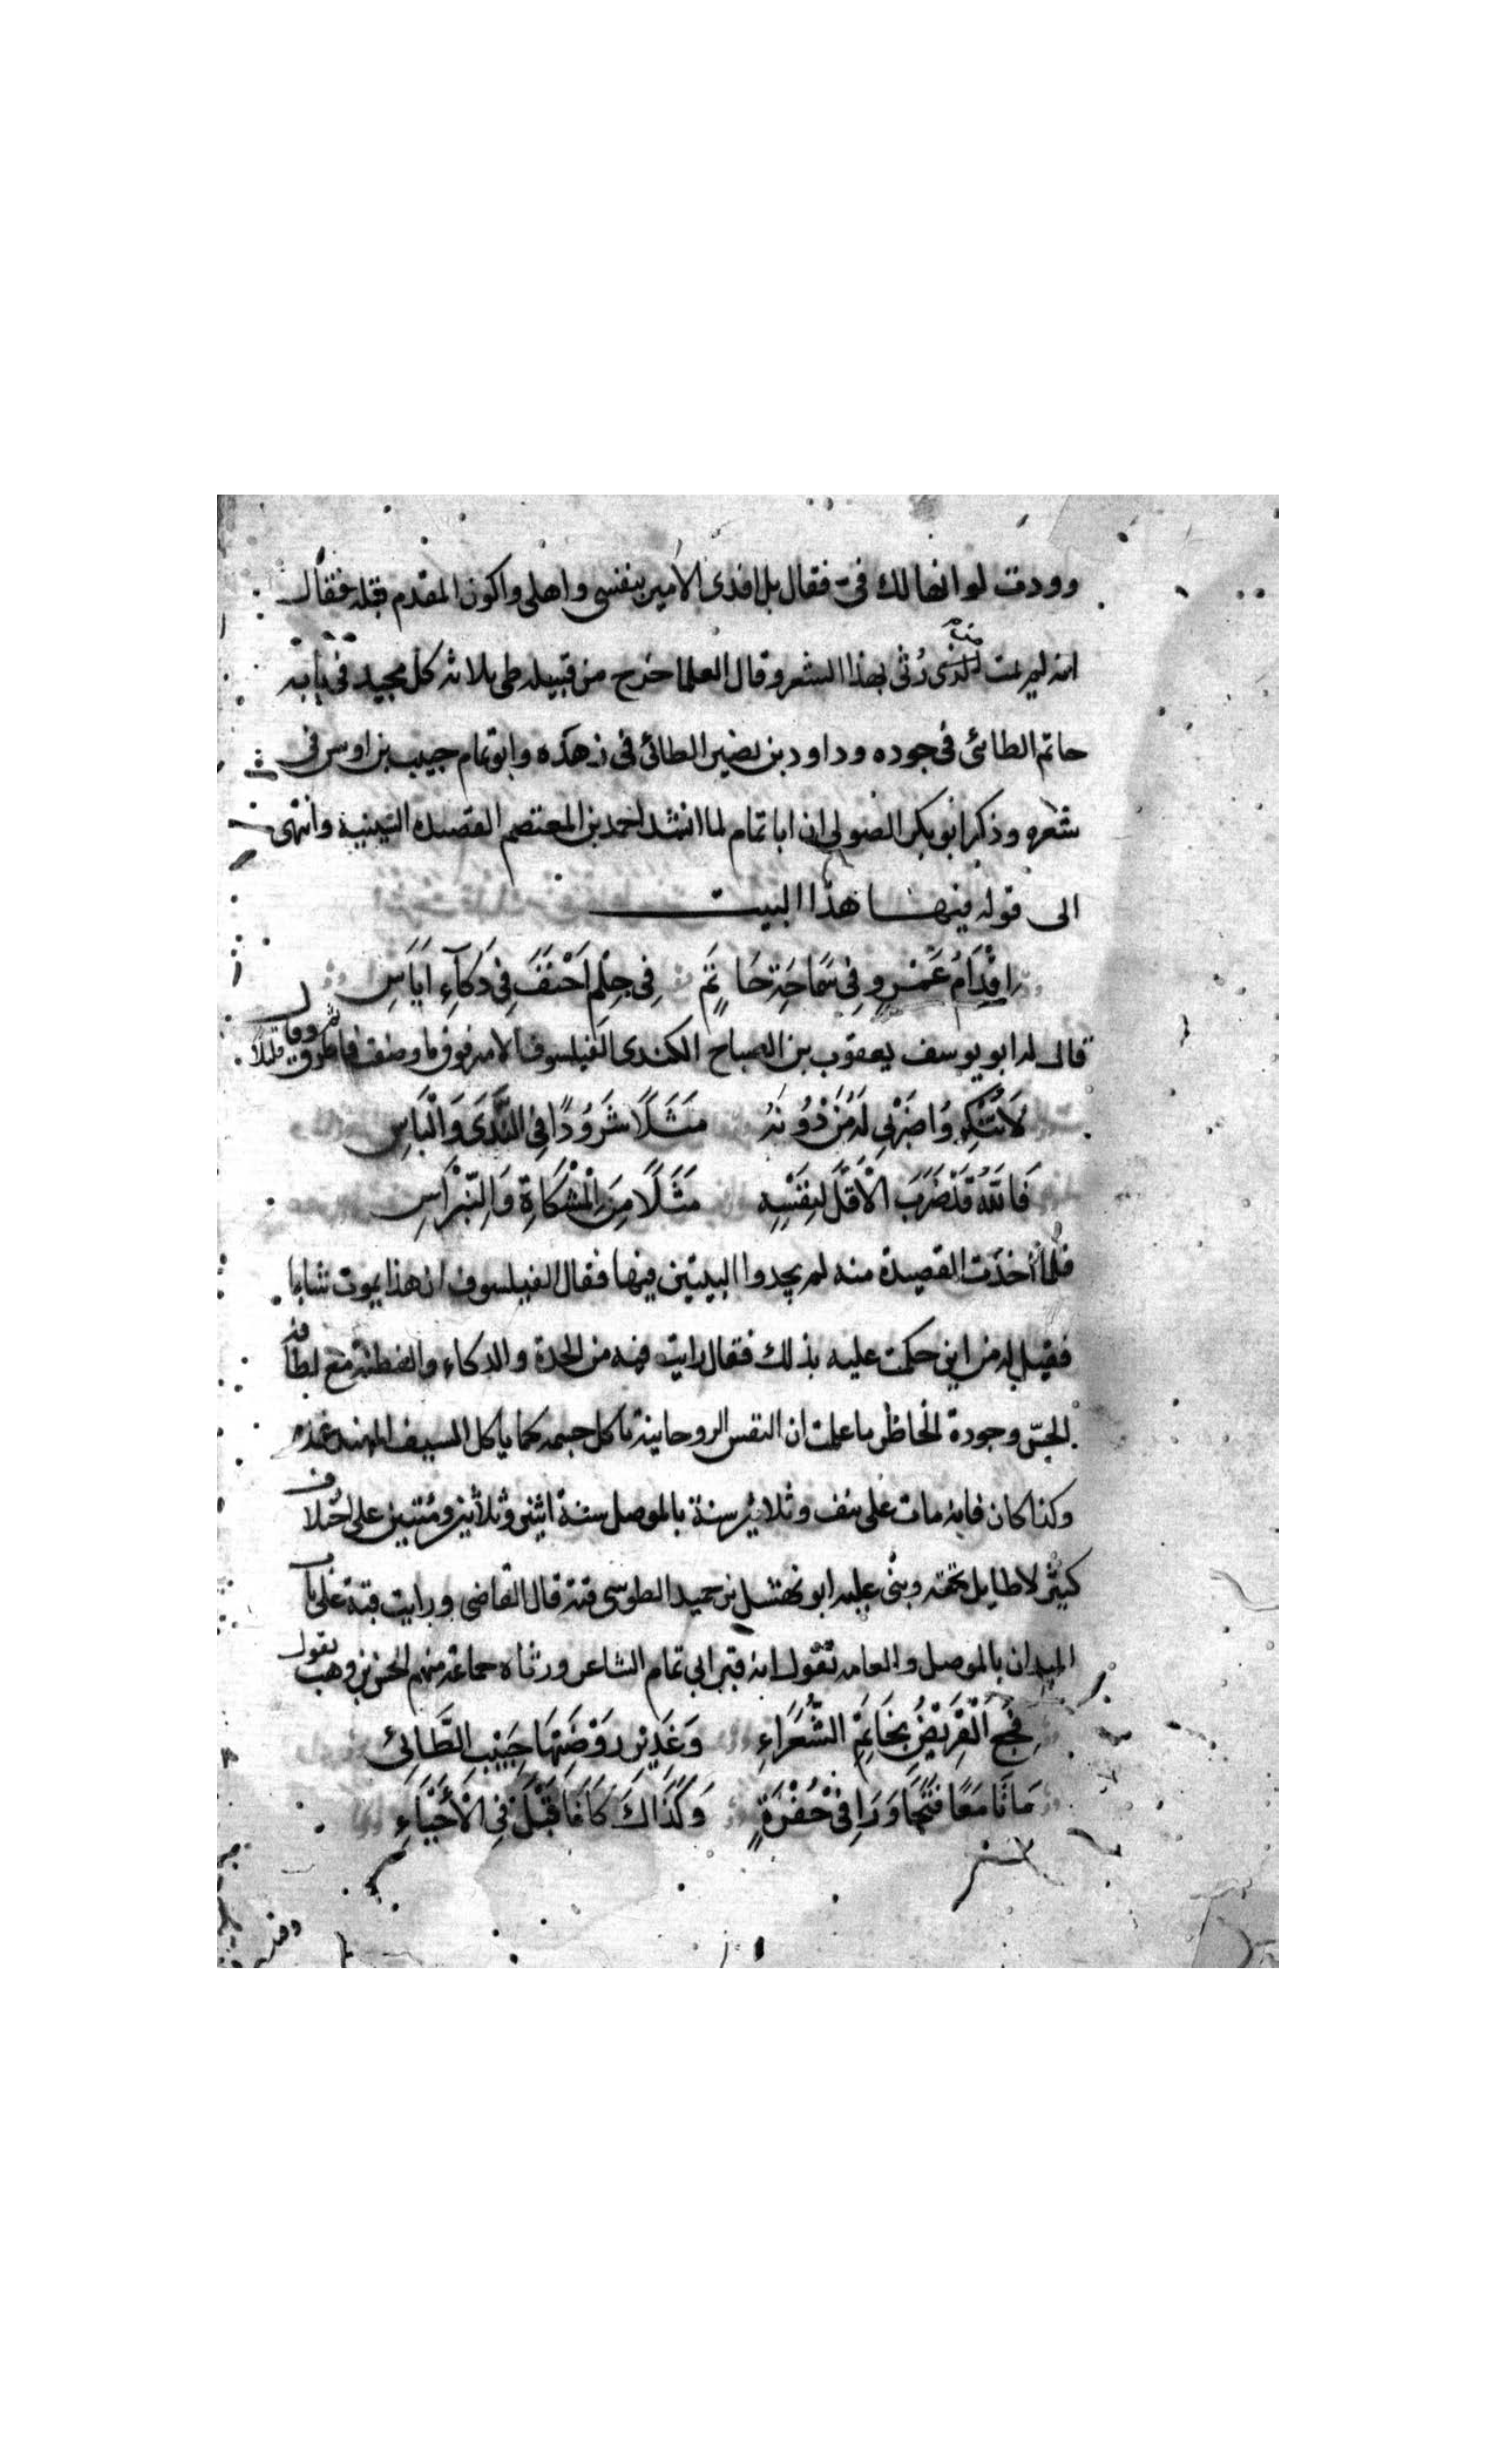 وودت لو انها لك فيّ فقال بل افدى الامير بنفسى واهلى واكون المقدم قبله فقال
انه لم يمت الذى رُثى بهذا الشعر وقال العلما خرج من قبيله طى ثلاثه كل مجيد فى بابه
حاتم الطائى فى جوده وداود بن نصير الطائى فى زهده وابو تمام حبيب بن اوس فى
شعره وذكر ابو بكر الصولى ان ابا تمام لما انشد احمد بن المعتصم القصيده السينية وانتهى
الى قوله فيها هذا البيت
اِقْدَامُ عَمْرٍو فِى سَمَاحَةِ حَاتِمٍ فِى حِلْمِ اَحْنَفَ فِى ذَكَآءِ اِيَاسِ
قال له ابو يوسف يعقوب بن الصباح الكندى الفيلسوف الامير فوق ما وصف فاطرق قليلاً ثم رفع وقال
لَا تُنْكِرُوا ضَرْبِى لَهُ مَنْ دُونَهُ مَثَلًا شَرُودًا فِى النَّدَى وَالْبَاسِ
فَاللهُ قَدْ ضَرَبَ الْاَقَلَّ لِنَفْسِهِ مَثَلًا مِنَ الْمِشْكَاةِ وَالنِّبْرَاسِ
فلما أخذت القصيدة منه لم يجدوا البيتين فيها فقال الفيلسوف ان هذا يموت شابا
فقيل له من اين حكمت عليه بذلك فقال رايت فيه من الحدة والذكاء والفطنة مع لطافة
الحسّ وجودة الخاطر ما علمت ان النفس الروحانية تاكل جسمه كما ياكل السيف المهند غمده
وكذا كان فانه مات على نيف وثلاثين سنة بالموصل سنة اثنى وثلاثين ومئتين على اختلاف
كثير لا طايل تحته وبنى عليه ابو نهشل بن حميد الطوسى قبة قال القاضى ورايت قبته على باب
الميدان بالموصل والعامه تقول انه قبر ابى تمام الشاعر ورثاه جماعة منهم الحسن بن وهب بقول
فُجِعَ الْقَرِيضُ بِخَاتِمِ الشُّعَرَاءِ وَغَدِيرِ رَوْضَتِهَا حَبِيبِ الطَّائِى
مَاتَا مَعًا فَتَجَاوَرَا فِى حُفْرَةٍ وَكَذَاكَ كَانَا قَبْلُ فِى الْأَحْيَاءِ